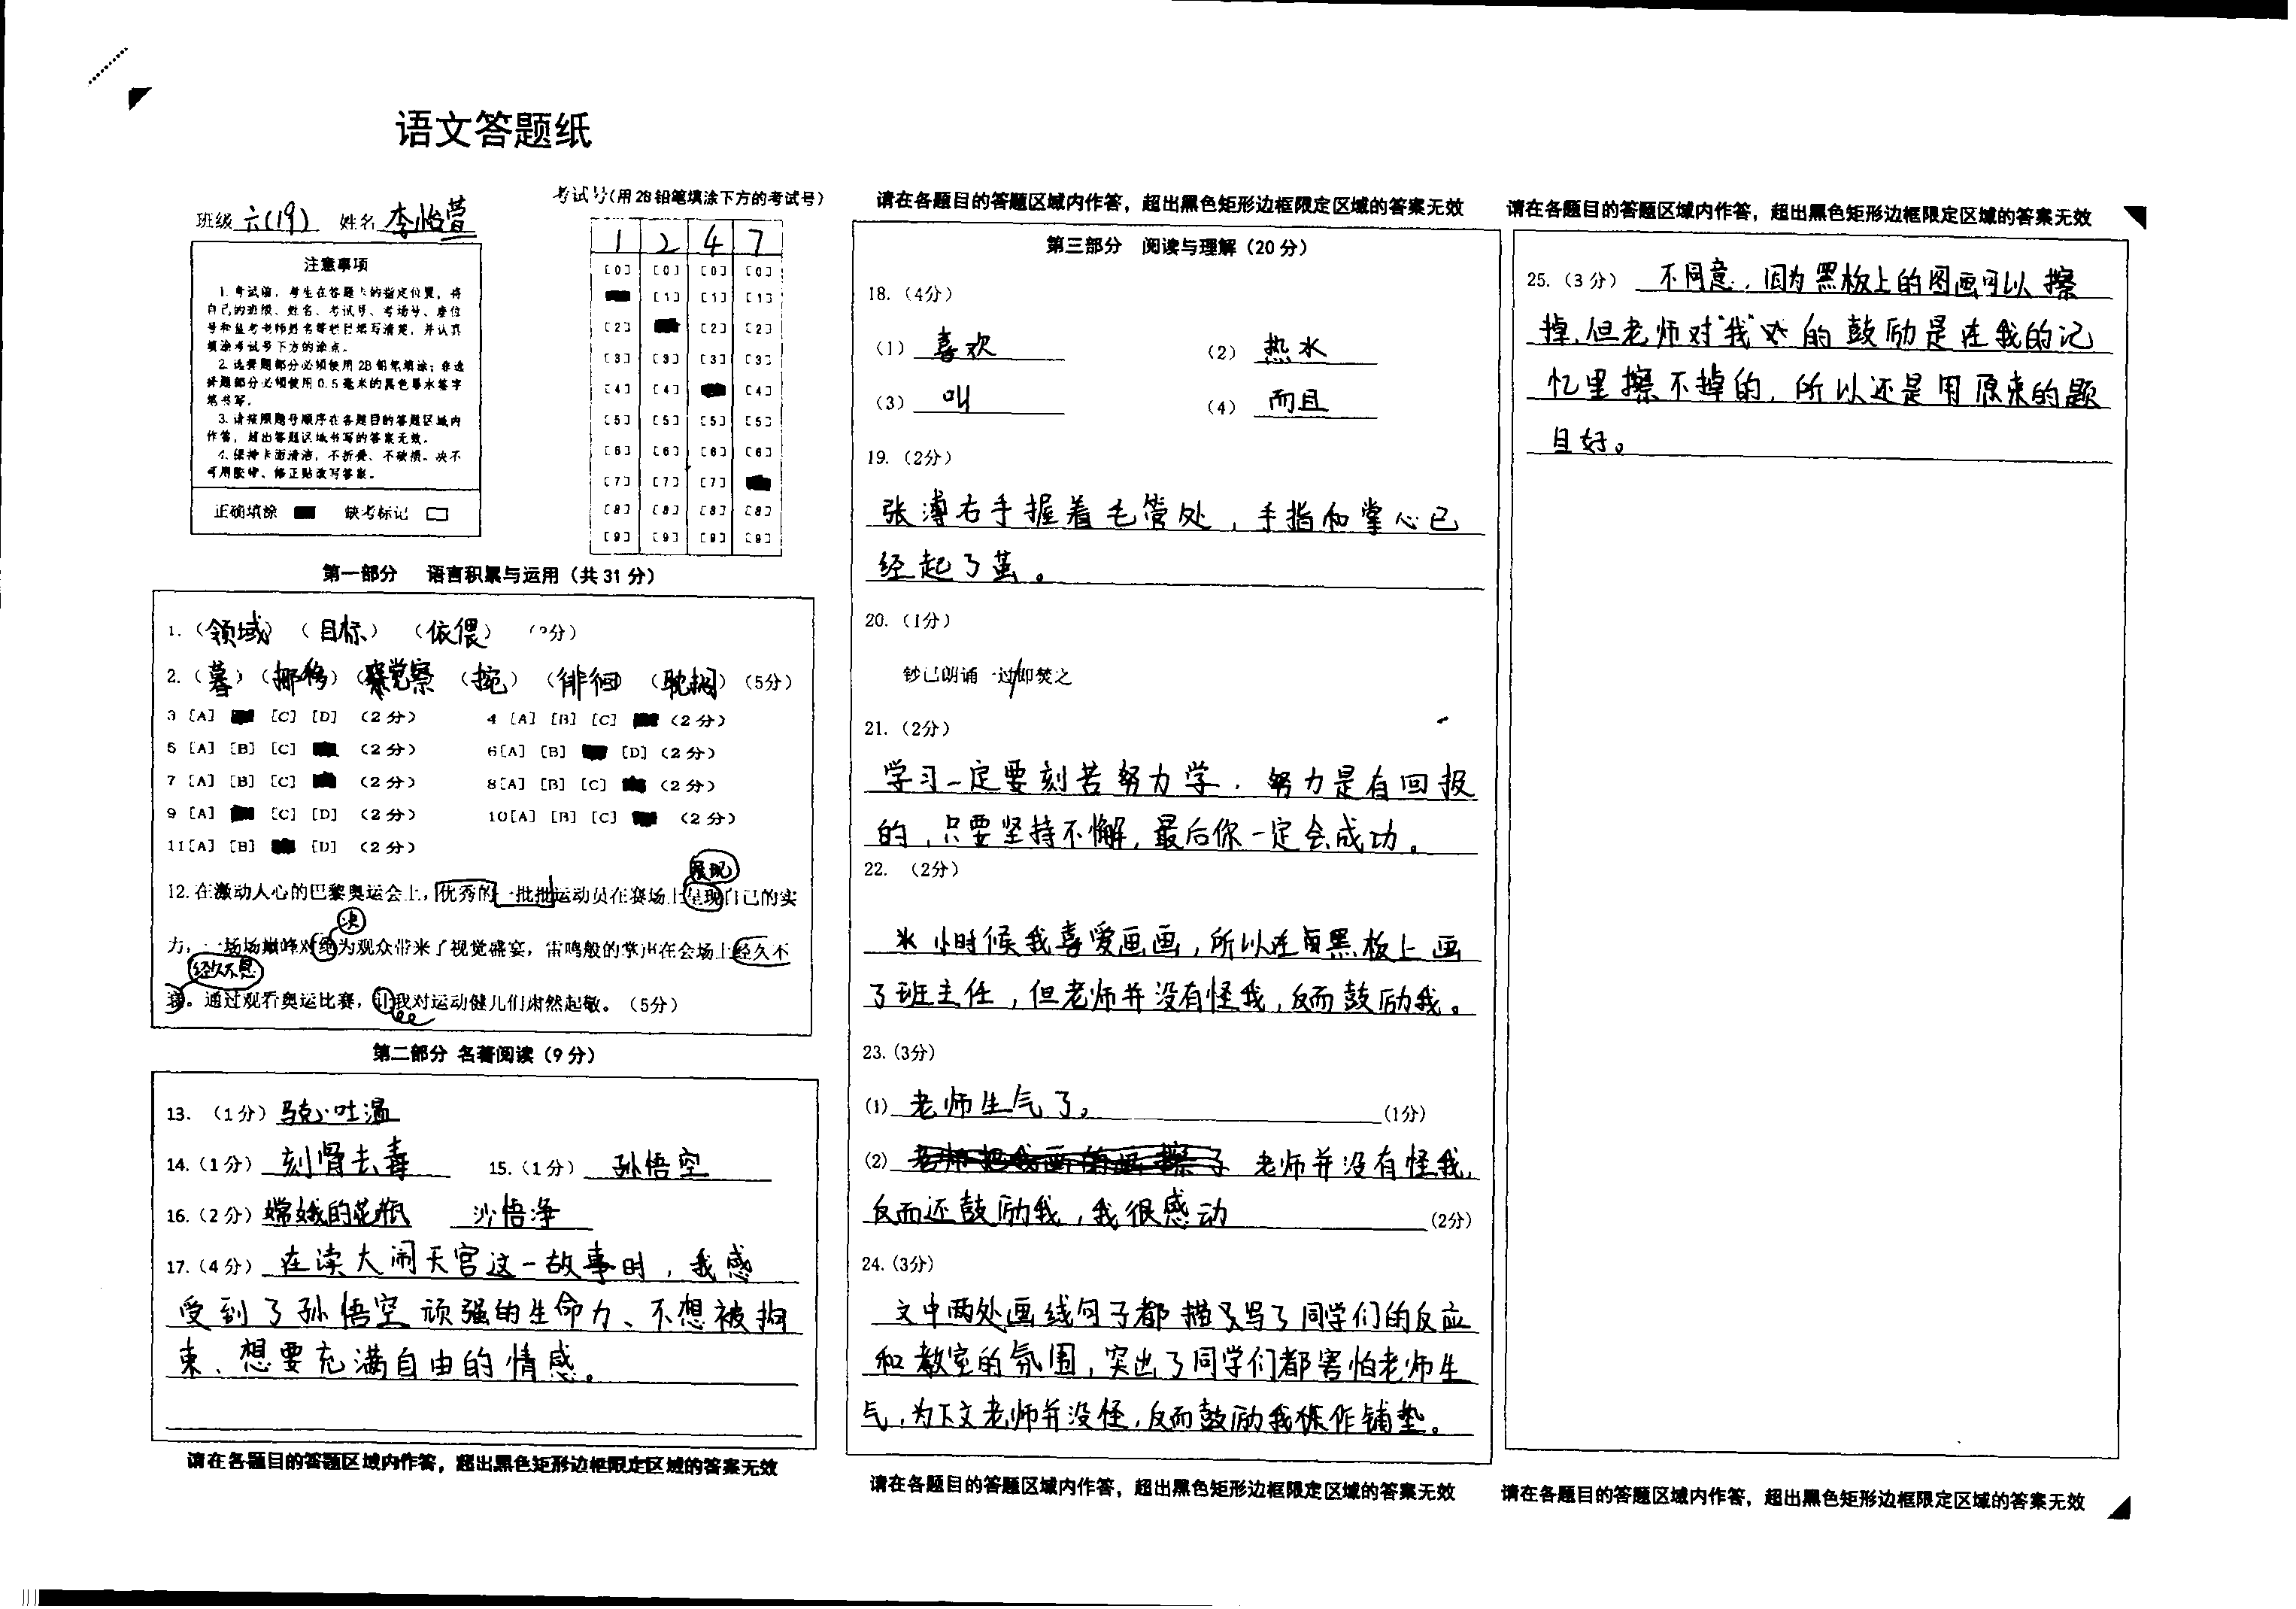 语文答题纸
班级 六(19) 姓名 李怡萱
考试号(用2B铅笔填涂下方的考试号)
1 2 4 7
[0] [0] [0] [0]
[1] [1] [1]
[2] [2] [2]
[3] [3] [3] [3]
[4] [4] [4]
[5] [5] [5] [5]
[6] [6] [6] [6]
[7] [7] [7]
[8] [8] [8] [8]
[9] [9] [9] [9]
注意事项
1.考试前,考生在答题卡的指定位置,将
自己的班级、姓名、考试号、考场号、座位
号和监考老师姓名等栏目填写清楚,并认真
填涂考试号下方的涂点。
2.选择题部分必须使用2B铅笔填涂;非选
择题部分必须使用0.5毫米的黑色墨水签字
笔书写。
3.请按照题号顺序在各题目的答题区域内
作答,超出答题区域书写的答案无效。
4.保持卡面清洁,不折叠、不破损。决不
可用胶带、修正贴改写答案。
正确填涂 缺考标记
第一部分 语言积累与运用(共31分)
1.(领域)(目标)(依偎)
2.(暮)(挪移)(觉察(捥)(徘徊(耽搁)(5分)
3 [A] [C] [D] (2分) 4 [A] [B] [C] (2分)
5 [A] [B] [C] (2分) 6[A] [B] [D] (2分)
7 [A] [B] [C] (2分) 8[A] [B] [C] (2分)
9 [A] [C] [D] (2分) 10[A] [B] [C] (2分)
11[A] [B] [D] (2分)
展现
12.在激动人心的巴黎奥运会上,优秀的一批批运动员在赛场上呈现自己的实
决
力,一场场巅峰对绝为观众带来了视觉盛宴,雷鸣般的掌声在会场上经久不
经久不息
衰。通过观看奥运比赛,让我对运动健儿们肃然起敬。(5分)
第二部分 名著阅读(9分)
13.(1分)马克·吐温
14.(1分)刻骨去毒 15.(1分)孙悟空
16.(2分)嫦娥的花瓶 沙悟净
17.(4分)在读大闹天宫这一故事时,我感
受到了孙悟空顽强的生命力、不想被拘
束、想要充满自由的情感。
请在各题目的答题区域内作答,超出黑色矩形边框限定区域的答案无效
请在各题目的答题区域内作答,超出黑色矩形边框限定区域的答案无效
第三部分 阅读与理解(20分)
18.(4分)
(1)喜欢 (2)热水
(3)叫 (4)而且
19.(2分)
张溥右手握着毛管处,手指和掌心已
经起了茧。
20.(1分)
钞已朗诵一过/即焚之
21.(2分)
学习一定要刻苦努力学,努力是有回报
的,只要坚持不懈,最后你一定会成功。
22.(2分)
小时候我喜爱画画,所以在黑板上画
了班主任,但老师并没有怪我,反而鼓励我。
23.(3分)
(1)老师生气了。(1分)
(2)老师并没有怪我,
反而还鼓励我,我很感动(2分)
24.(3分)
文中两处画线句子都描写了同学们的反应
和教室的氛围,突出了同学们都害怕老师生
气,为下文老师并没怪,反而鼓励我作铺垫。
请在各题目的答题区域内作答,超出黑色矩形边框限定区域的答案无效
请在各题目的答题区域内作答,超出黑色矩形边框限定区域的答案无效
25.(3分)不同意,因为黑板上的图画可以擦
掉,但老师对"我"的鼓励是在我的记
忆里擦不掉的,所以还是用原来的题
目好。
请在各题目的答题区域内作答,超出黑色矩形边框限定区域的答案无效